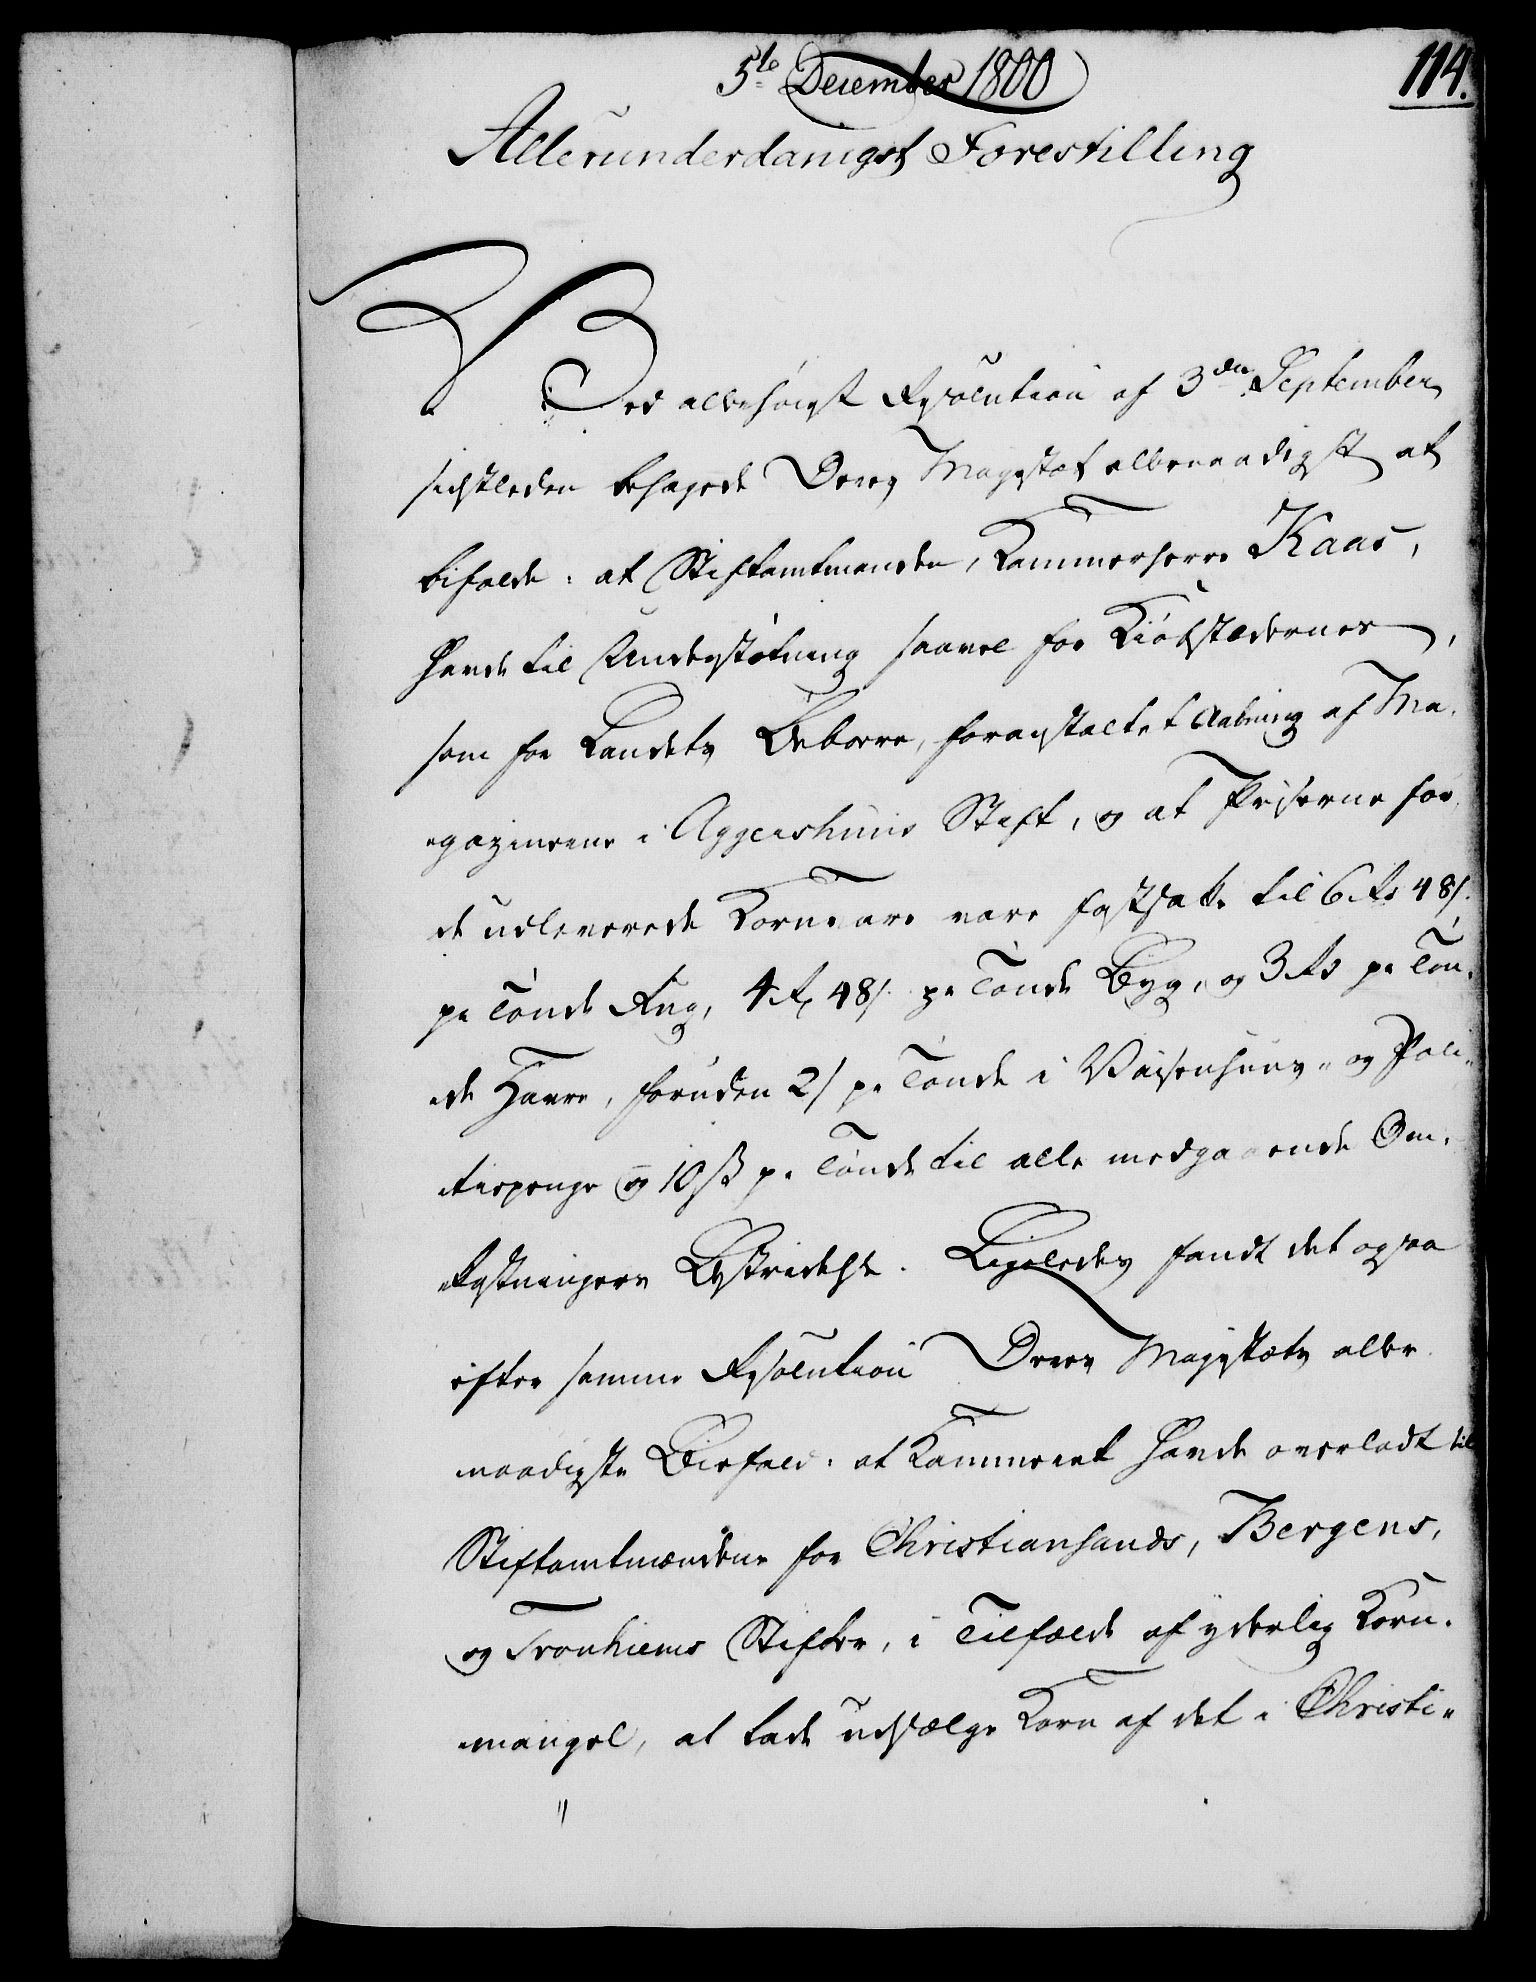 5te December 1800
114.
Allerunderdanigst Forestilling
Ved allerhøiest Resolution af 3den September
sidstleden behagede Deres Majestæt allernaadigst at
bifalde: at Stiftamtmanden, Kammerherre Kaas,
havde til Understøtning saavel for Kiøbstædernes,
som for Landets Beboere, foranstaltet Aabning af Ma-
gaziner i Aggershuus Stift, og at Priserne for
de udleverede Kornvare vare fastsatte til 6 Rd 48 s.
pr Tønde Rug, 4 Rd 48 s. pr Tønde Byg, og 3 Rd pr Tøn-
de Havre, foruden 2 s pr Tønde i Vaisenhuus- og Poli-
tiepenge og 10 s pr Tønde til alle medgaaende Om-
kostningers Bestridelse. Ligeledes fandt det ogsaa
efter samme Resolution Deres Majestæts aller-
naadigste Biefald: at Kammeret havde overladt til
Stiftamtmændene for Christiansands, Bergens,
og Tronhiems Stifter, i Tilfælde af yderlig Korn-
mangel, at lade udsælge Korn af det i Christi-